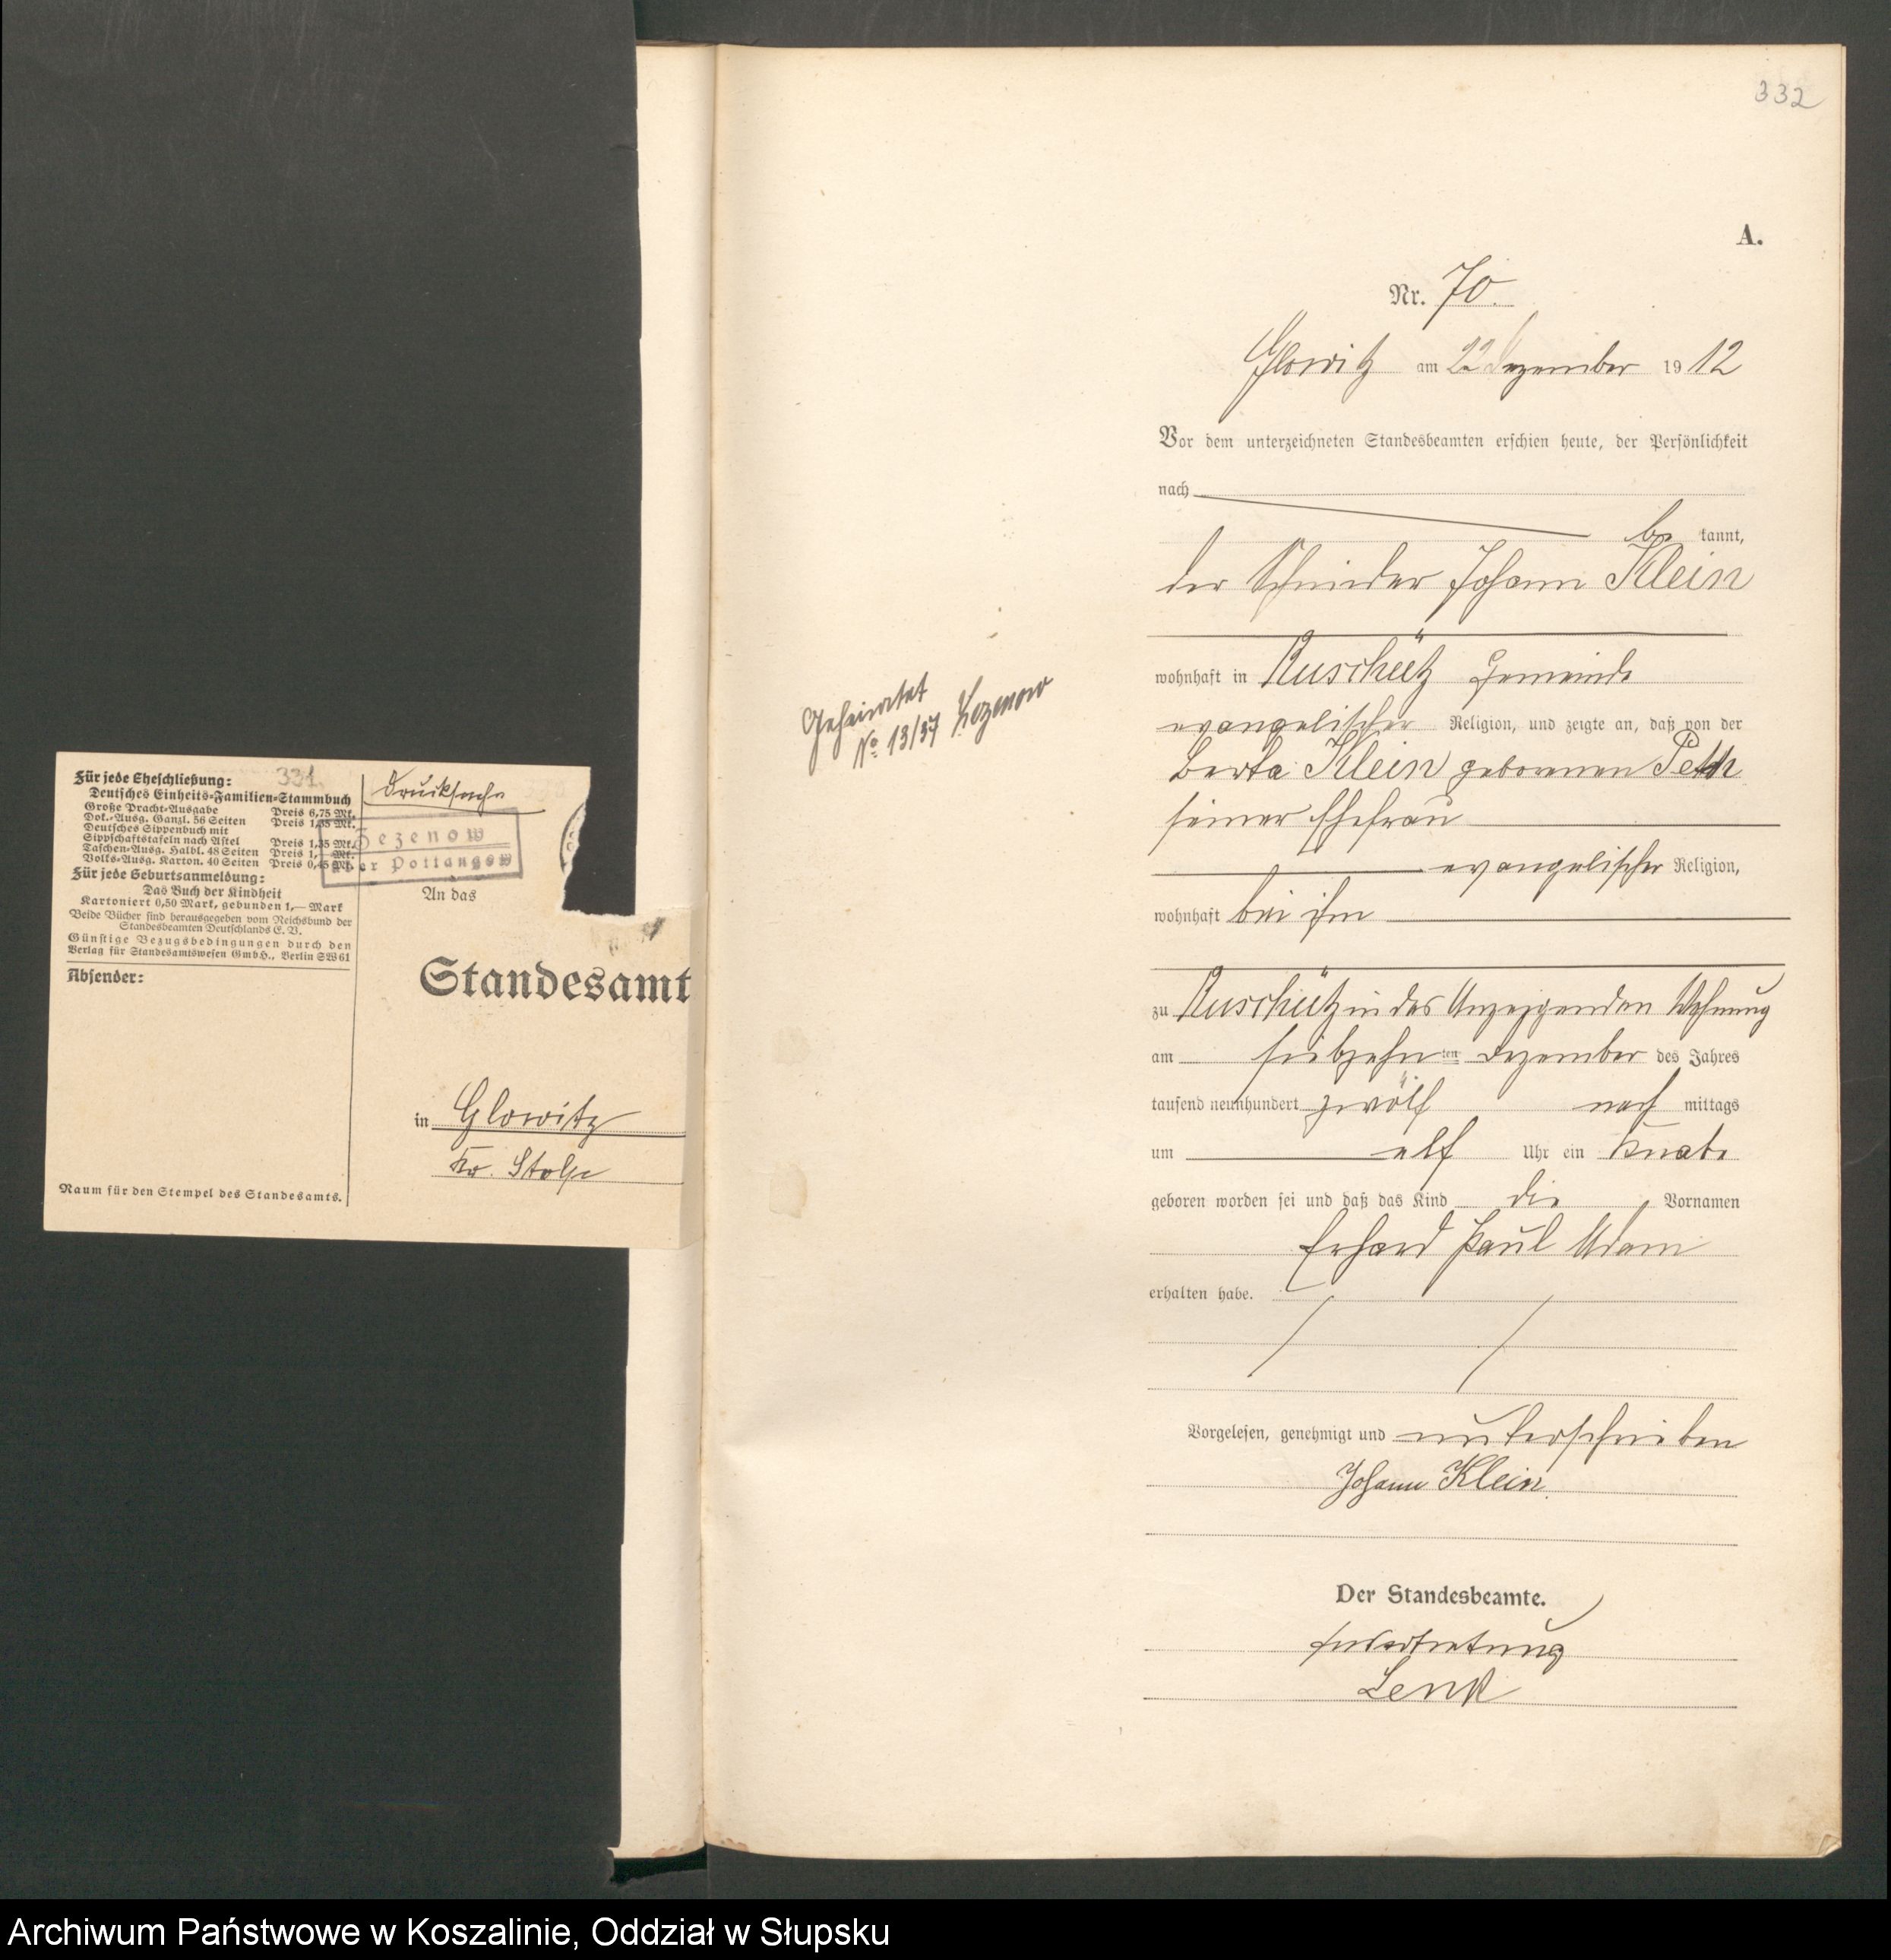 332
A.
Nr. 70.
Glowitz am 22 Dezember 1912
Vor dem unterzeichneten Standesbeamten erschien heute, der Persönlichkeit
nach
be kannt,
der Schmieder Johann Klein
wohnhaft in Ruschütz Gemeinde
evangelischer Religion, und zeigte an, daß von der
Berta Klein geborenen
seiner Ehefrau
evangelischer Religion,
wohnhaft bei ihm
zu Ruschütz in des Anzeigenden Wohnung
am siebzehnten Dezember des Jahres
tausend neunhundert zwölf nach mittags
um elf Uhr ein Knabe
geboren worden sei und daß das Kind die Vornamen
Erhard Paul Adam
erhalten habe.
Vorgelesen, genehmigt und unterschrieben
Johann Klein.
Der Standesbeamte.
In Vertretung
Lenk
Geheiratet
No 13/37 Zezenow
331.
Für jede Eheschließung:
Deutsches Einheits-Familien-Stammbuch
Große Pracht-Ausgabe Preis 6,75 Mk.
Dok.-Ausg. Ganzl. 56 Seiten Preis 1,35 Mk.
Deutsches Sippenbuch mit
Sippschaftstafeln nach Astel Preis 1,35 Mk.
Taschen-Ausg. Halbl. 48 Seiten Preis 1,— Mk.
Volks-Ausg. Karton. 40 Seiten Preis 0,45 Mk.
Für jede Geburtsanmeldung:
Das Buch der Kindheit
Kartoniert 0,50 Mark, gebunden 1,— Mark
Beide Bücher sind herausgegeben vom Reichsbund der
Standesbeamten Deutschlands E. V.
Günstige Bezugsbedingungen durch den
Verlag für Standesamtswesen GmbH., Berlin SW 61
Absender:
Raum für den Stempel des Standesamts.
Drucksache
Zezenow
über Pottangow
An das
Standesamt
in Glowitz
Kr. Stolp
Archiwum Państwowe w Koszalinie, Oddział w Słupsku